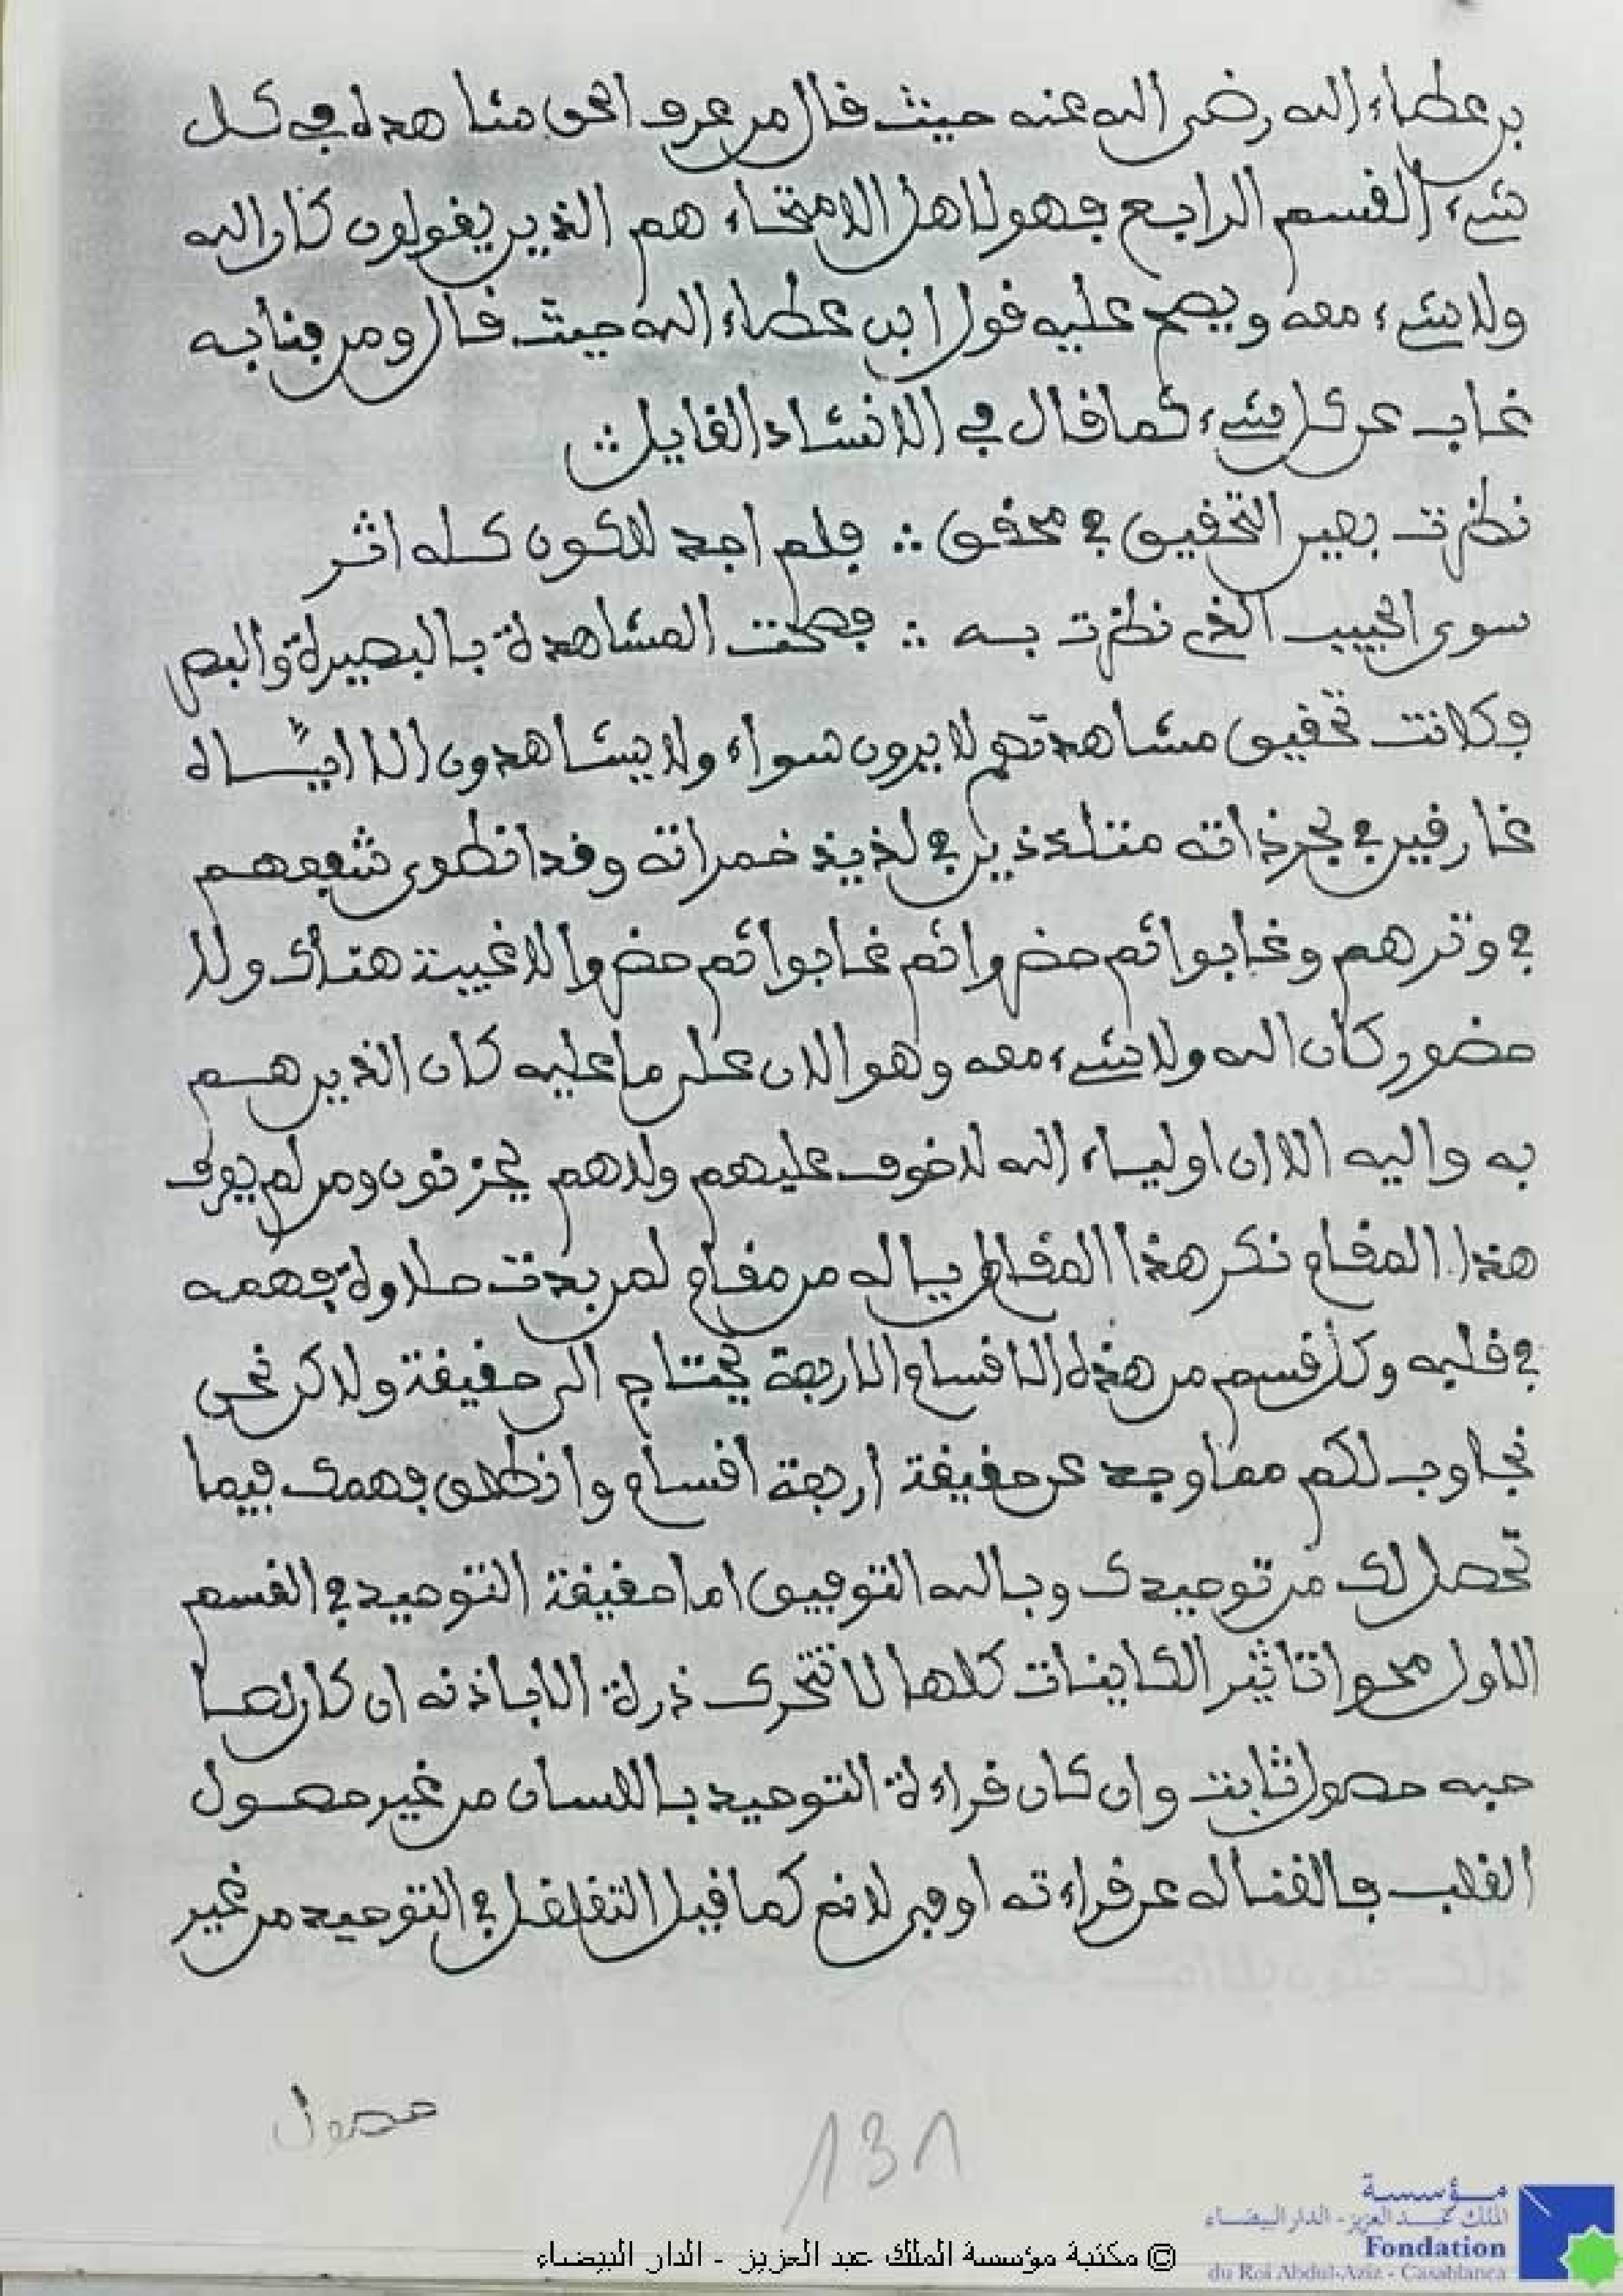 بن عطاء الله رضى الله عنه حيث قال من عرف الحق شاهده في كل
شيء القسم الرابع فهو لاهل الامتحاء هم الذين يقولون كان الله
ولا شيء معه ويصح عليه قول ابن عطاء الله حيث قال ومن فنا به
غاب عن كل شيء كما قال في الانشاد القايل ∴
نظرت بعين التحقيق في محقق ∴ فلم اجد للكون كله اثر
سوى الحبيب الذي نظرت به ∴ فصحت المشاهدة بالبصيرة والبصر
وكانت تحقيق مشاهدتهم لا يرون سواء ولا يشاهدون الا اياه
غارقين في بحر ذاته متلذذين في لذيذ خمراته وقد انطوى شفعهم
في وترهم وغابوا ثم حضروا ثم غابوا ثم حضروا لا غيبة هناك ولا
حضور كان الله ولا شيء معه وهو الان على ما عليه كان الذين هم
به واليه الا ان اولياء الله لا خوف عليهم ولا هم يحزنون ومن لم يعرف
هذا المقام نكر هذا المقام يا له من مقام لمن بدت حلاوة فهمه
في قلبه وكل قسم من هذه الاقسام الاربعة يحتاج الى حقيقة ولاكن نحن
نجاوب لكم مما وجد عن حقيقة اربعة اقسام وانطلق فهمك فيما
تحصل لك من توحيدك وبالله التوفيق اما حقيقة التوحيد في القسم
الاول محو اتاثير الكاينات كلها لا تتحرك ذرة الا باذنه ان كان لصا
حبه حصول ثابت وان كان قراءة التوحيد باللسان من غير حصول
القلب فالفنا له عن قراءته اوفى لانه كما قيل التقلقل في التوحيد من غير
حصول
131
© مكتبة مؤسسة الملك عبد العزيز - الدار البيضاء
مؤسسة
الملك عبد العزيز - الدار البيضاء
Fondation
du Roi Abdul-Aziz - Casablanca